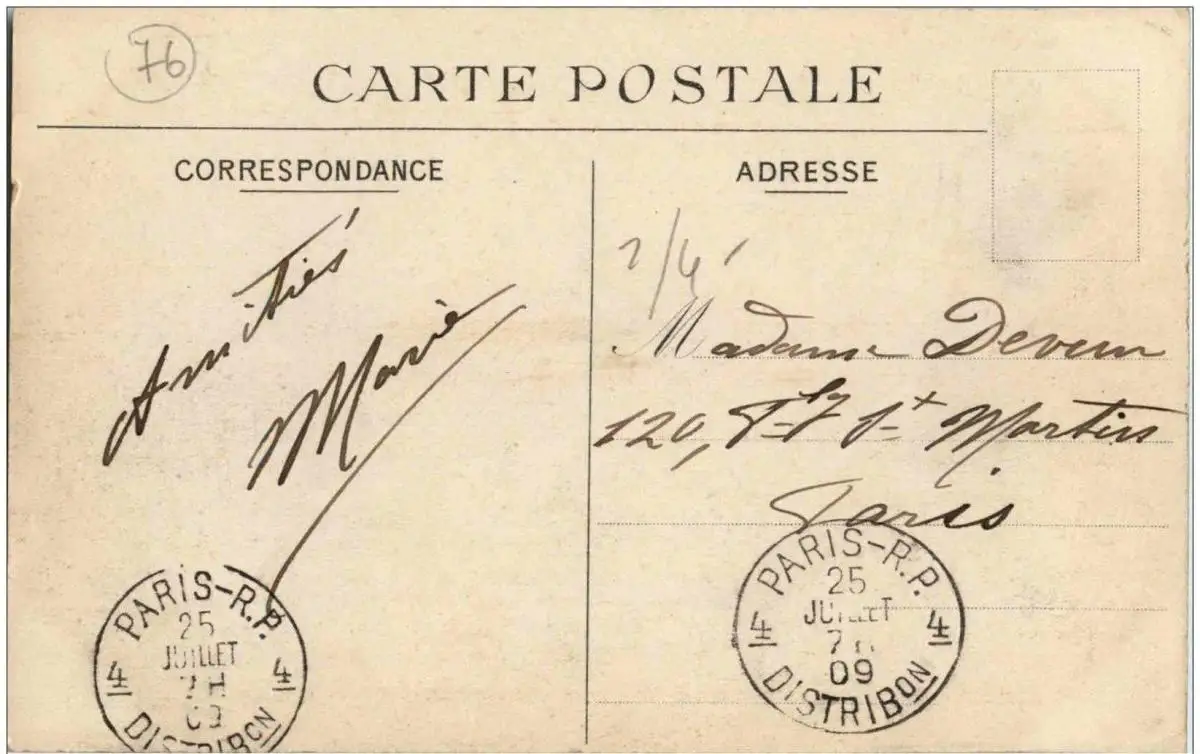 76
CARTE POSTALE
CORRESPONDANCE
Amitiés
Marie
ADRESSE
Madame
120, Fg St Martin
Paris
PARIS-R.P.
25
JUILLET
7H
09
4 4
DISTRIBON
PARIS-R.P.
25
JUILLET
7H
09
4 4
DISTRIBON